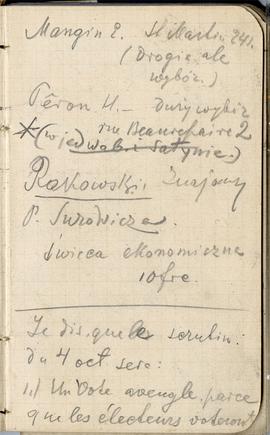 Mangin E. St Martin 241.
(Drogie ale
wybór.)
Péron H. – Duży wybór
rue Beaurepaire 2
(w jedwabiu Satynie.)
Rakowski. Znajomy
P. Surowicza.
świeca ekonomiczna
10 frc.
Je dis que le scrutin
du 4 oct. sera:
1.) Un Vote aveugle, parce
que les électeurs voteront